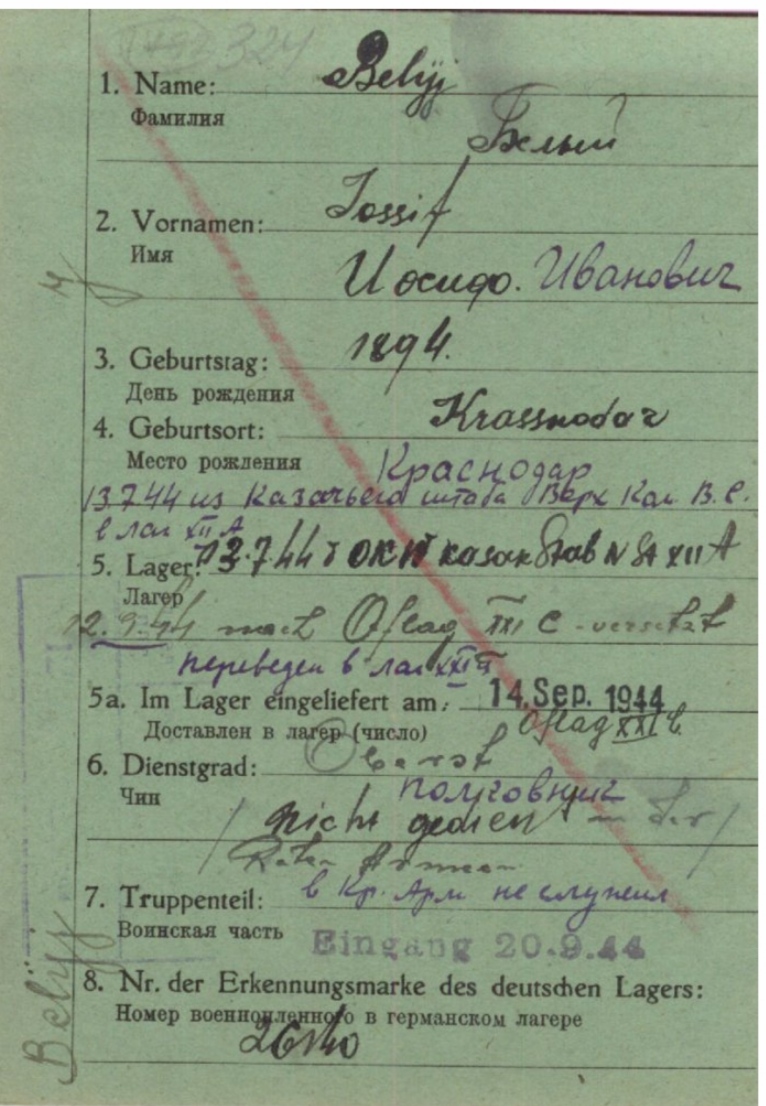 324
1. Name: Belyj
Фамилия
Белый
2. Vornamen: Iossif
Имя
Иосиф. Иванович
3. Geburtstag: 1894.
День рождения
4. Geburtsort: Krassnodar
Место рождения
Краснодар
13.7.44 из Казачьего штаба Верх Ком. В. С.
в лаг XII A
5. Lager: 13.7.44 v OKW kosak Stab N St XII A
Лагерь
12.9.44 nach Oflag XXI C versetzt
переведен в лаг XXI
5a. Im Lager eingeliefert am: 14. Sep. 1944
Доставлен в лагер (число)
Oflag XXI C
6. Dienstgrad: Oberst
Чин
полковник
/ nicht gedient in der /
Roten Armee
7. Truppenteil: в Кр. Арм не служил
Воинская часть
Eingang 20.9.44
8. Nr. der Erkennungsmarke des deutschen Lagers:
Номер военнопленного в германском лагере
Belyj